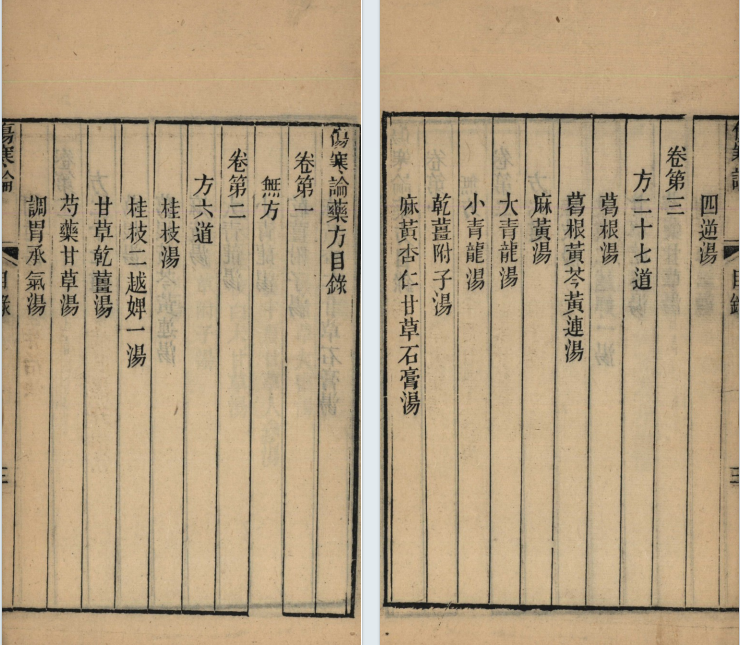 傷寒論藥方目錄
卷第一
無方
卷第二
方六道
桂枝湯
桂枝二越婢一湯
甘草乾薑湯
芍藥甘草湯
調胃承氣湯
傷寒論 目錄 三
四逆湯
卷第三
方二十七道
葛根湯
葛根黃芩黃連湯
麻黃湯
大青龍湯
小青龍湯
乾薑附子湯
麻黃杏仁甘草石膏湯